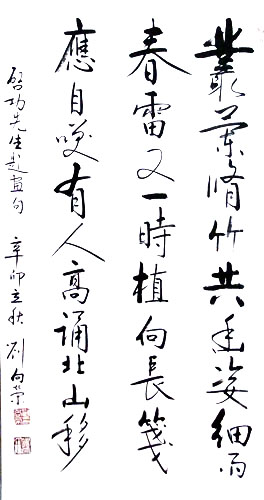 叢蘭脩竹共姿細雨
春雷又一時植向長箋
應自咲有人高誦北山移
啓功先生題畫句 辛卯立秋 劉向榮